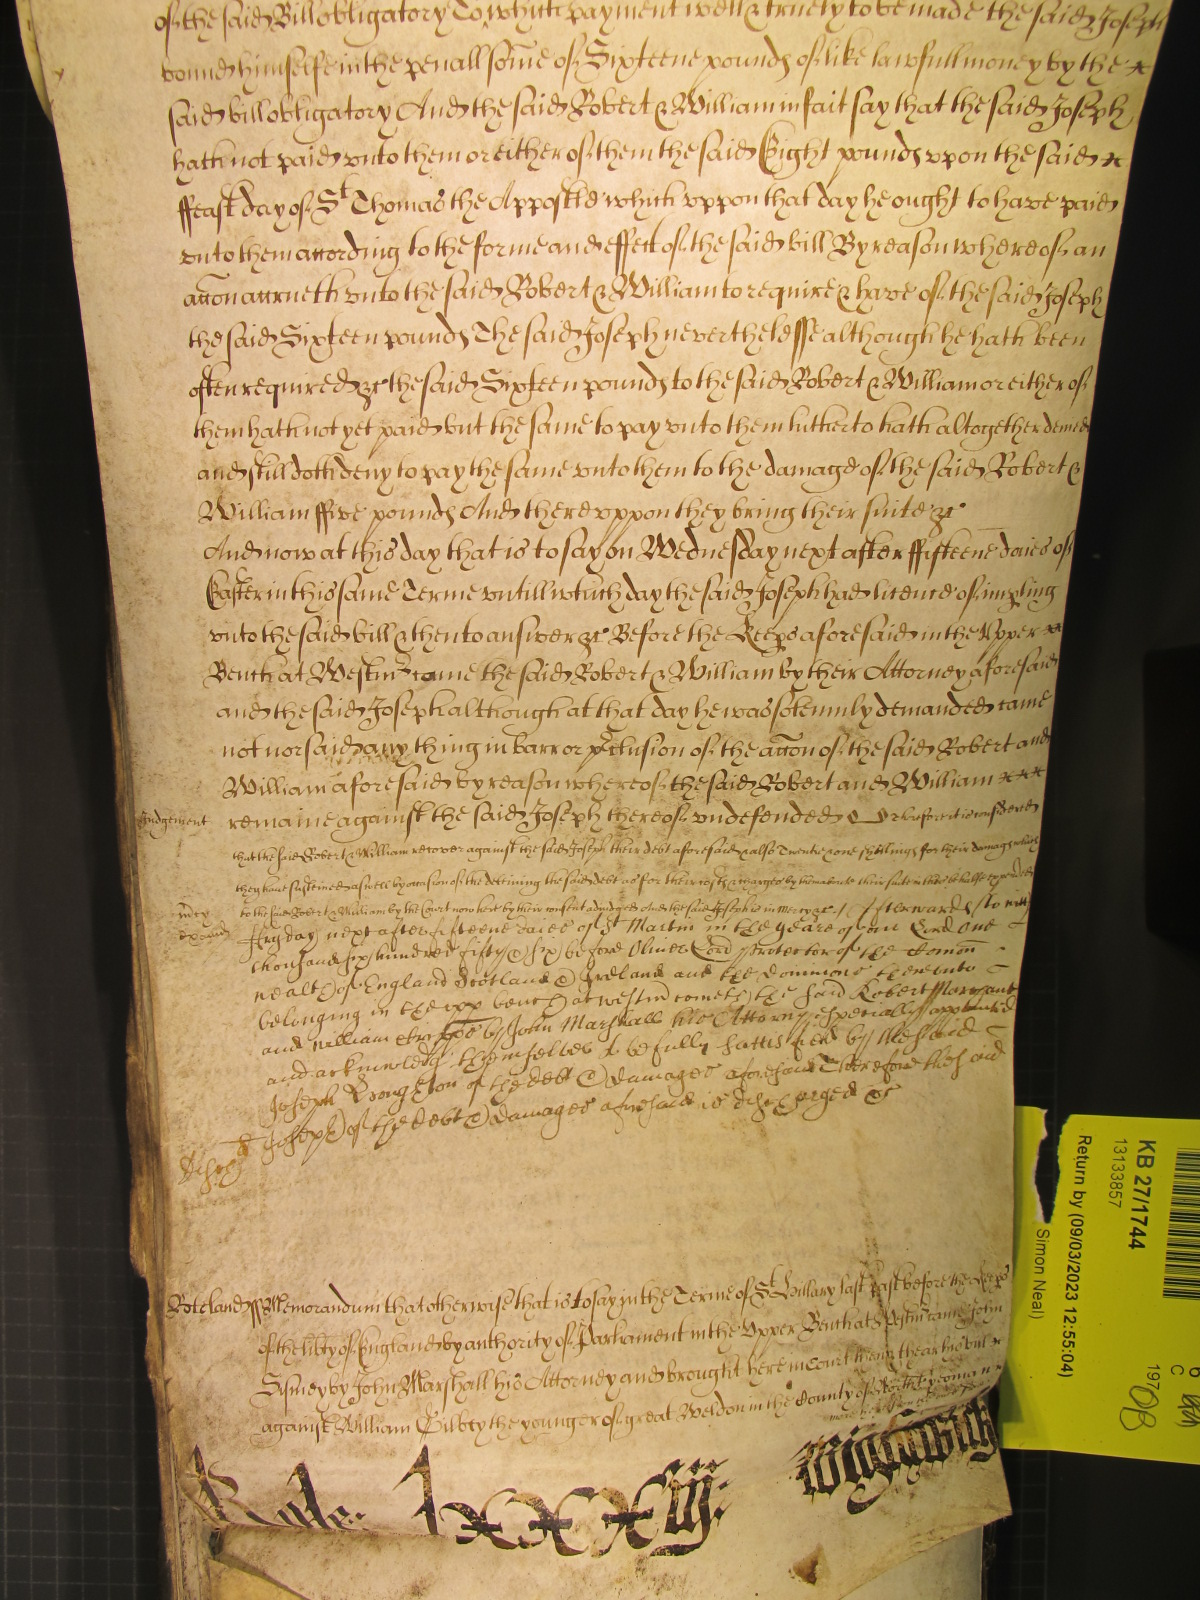 of the said Bill obligatory To which payment well & truely to be made the said Joseph
bound himselfe in the penall some of Sixteene pounds of like lawfull money by the
said bill obligatory And the said Robert & William in fait say that the said Joseph
hath not paid unto them or either of them the said Eight pounds upon the said
ffeast day of St Thomas the Appostle which uppon that day he ought to have paid
unto them according to the forme and effect of the said bill By reason whereof an
accon accrueth unto the said Robert & William to require & have of the said Joseph
the said Sixteen pounds The said Joseph neverthelesse although he hath been
often required &c the said Sixteen pounds to the said Robert & William or either of
them hath not yet paid but the same to pay unto them hitherto hath altogether denied
and still doth deny to pay the same unto them to the damage of the said Robert &
William ffive pounds And thereuppon they bring their suite &c
And now at this day that is to say on Wednesday next after ffifteene daies of
Easter in this same Terme untill which day the said Joseph had licence of impling
unto the said bill & then to answer &c Before the Keeps aforesaid in the Upper
Bench at Westmr came the said Robert & William by their Attorney aforesaid
and the said Joseph although at that day he was solemnly demanded came
not nor said any thing in barr or pclusion of the accon of the said Robert and
William aforesaid by reason whereof the said Robert and William
Judgement remaine against the said Joseph thereof undefended Therefore it is considered
that the said Robert & William recover against the said Joseph their debt aforesaid & alsoe Twenty & one shillings for their damages which
they have susteined aswell by occasion of the deteining the said debt as for their costs & charges by them about their suite in this behalfe expended
mcy to the said Robert & William by the Court now here by their consent adjudged And the said Joseph is in mercy &c Afterwards to witt
ffryday next after fifteene daies of St Martin in the yeare of our Lord one
thousand six hundred fifty & six before Oliver Lord Protector of the Comon
wealth of England Scotland & Ireland and the dominions thereunto
belonging in the upp bench at westm cometh the said Robert
and William by John Marshall his Attorny especially appointed
and acknowledg themselves to be fully sattisfied by the said
Joseph of the debt & damages aforesaid Therefore the said
Joseph of the debt & damages aforesaid is discharged &c
Roteland ss Memorandum that otherwise that is to say in the Terme of St Hillary last past before the Keeps
of the libty of England by authority of Parliament in the Upper Bench at Westmr came John
Sismey by John Marshall his Attorney and brought here in Court then & there his bill
against William the younger of great Weldon in the County of North yeoman
Role. lxxxiij:
KB 27/1744
13133857
Return by (09/03/2023 12:55:04)
Simon Neal)